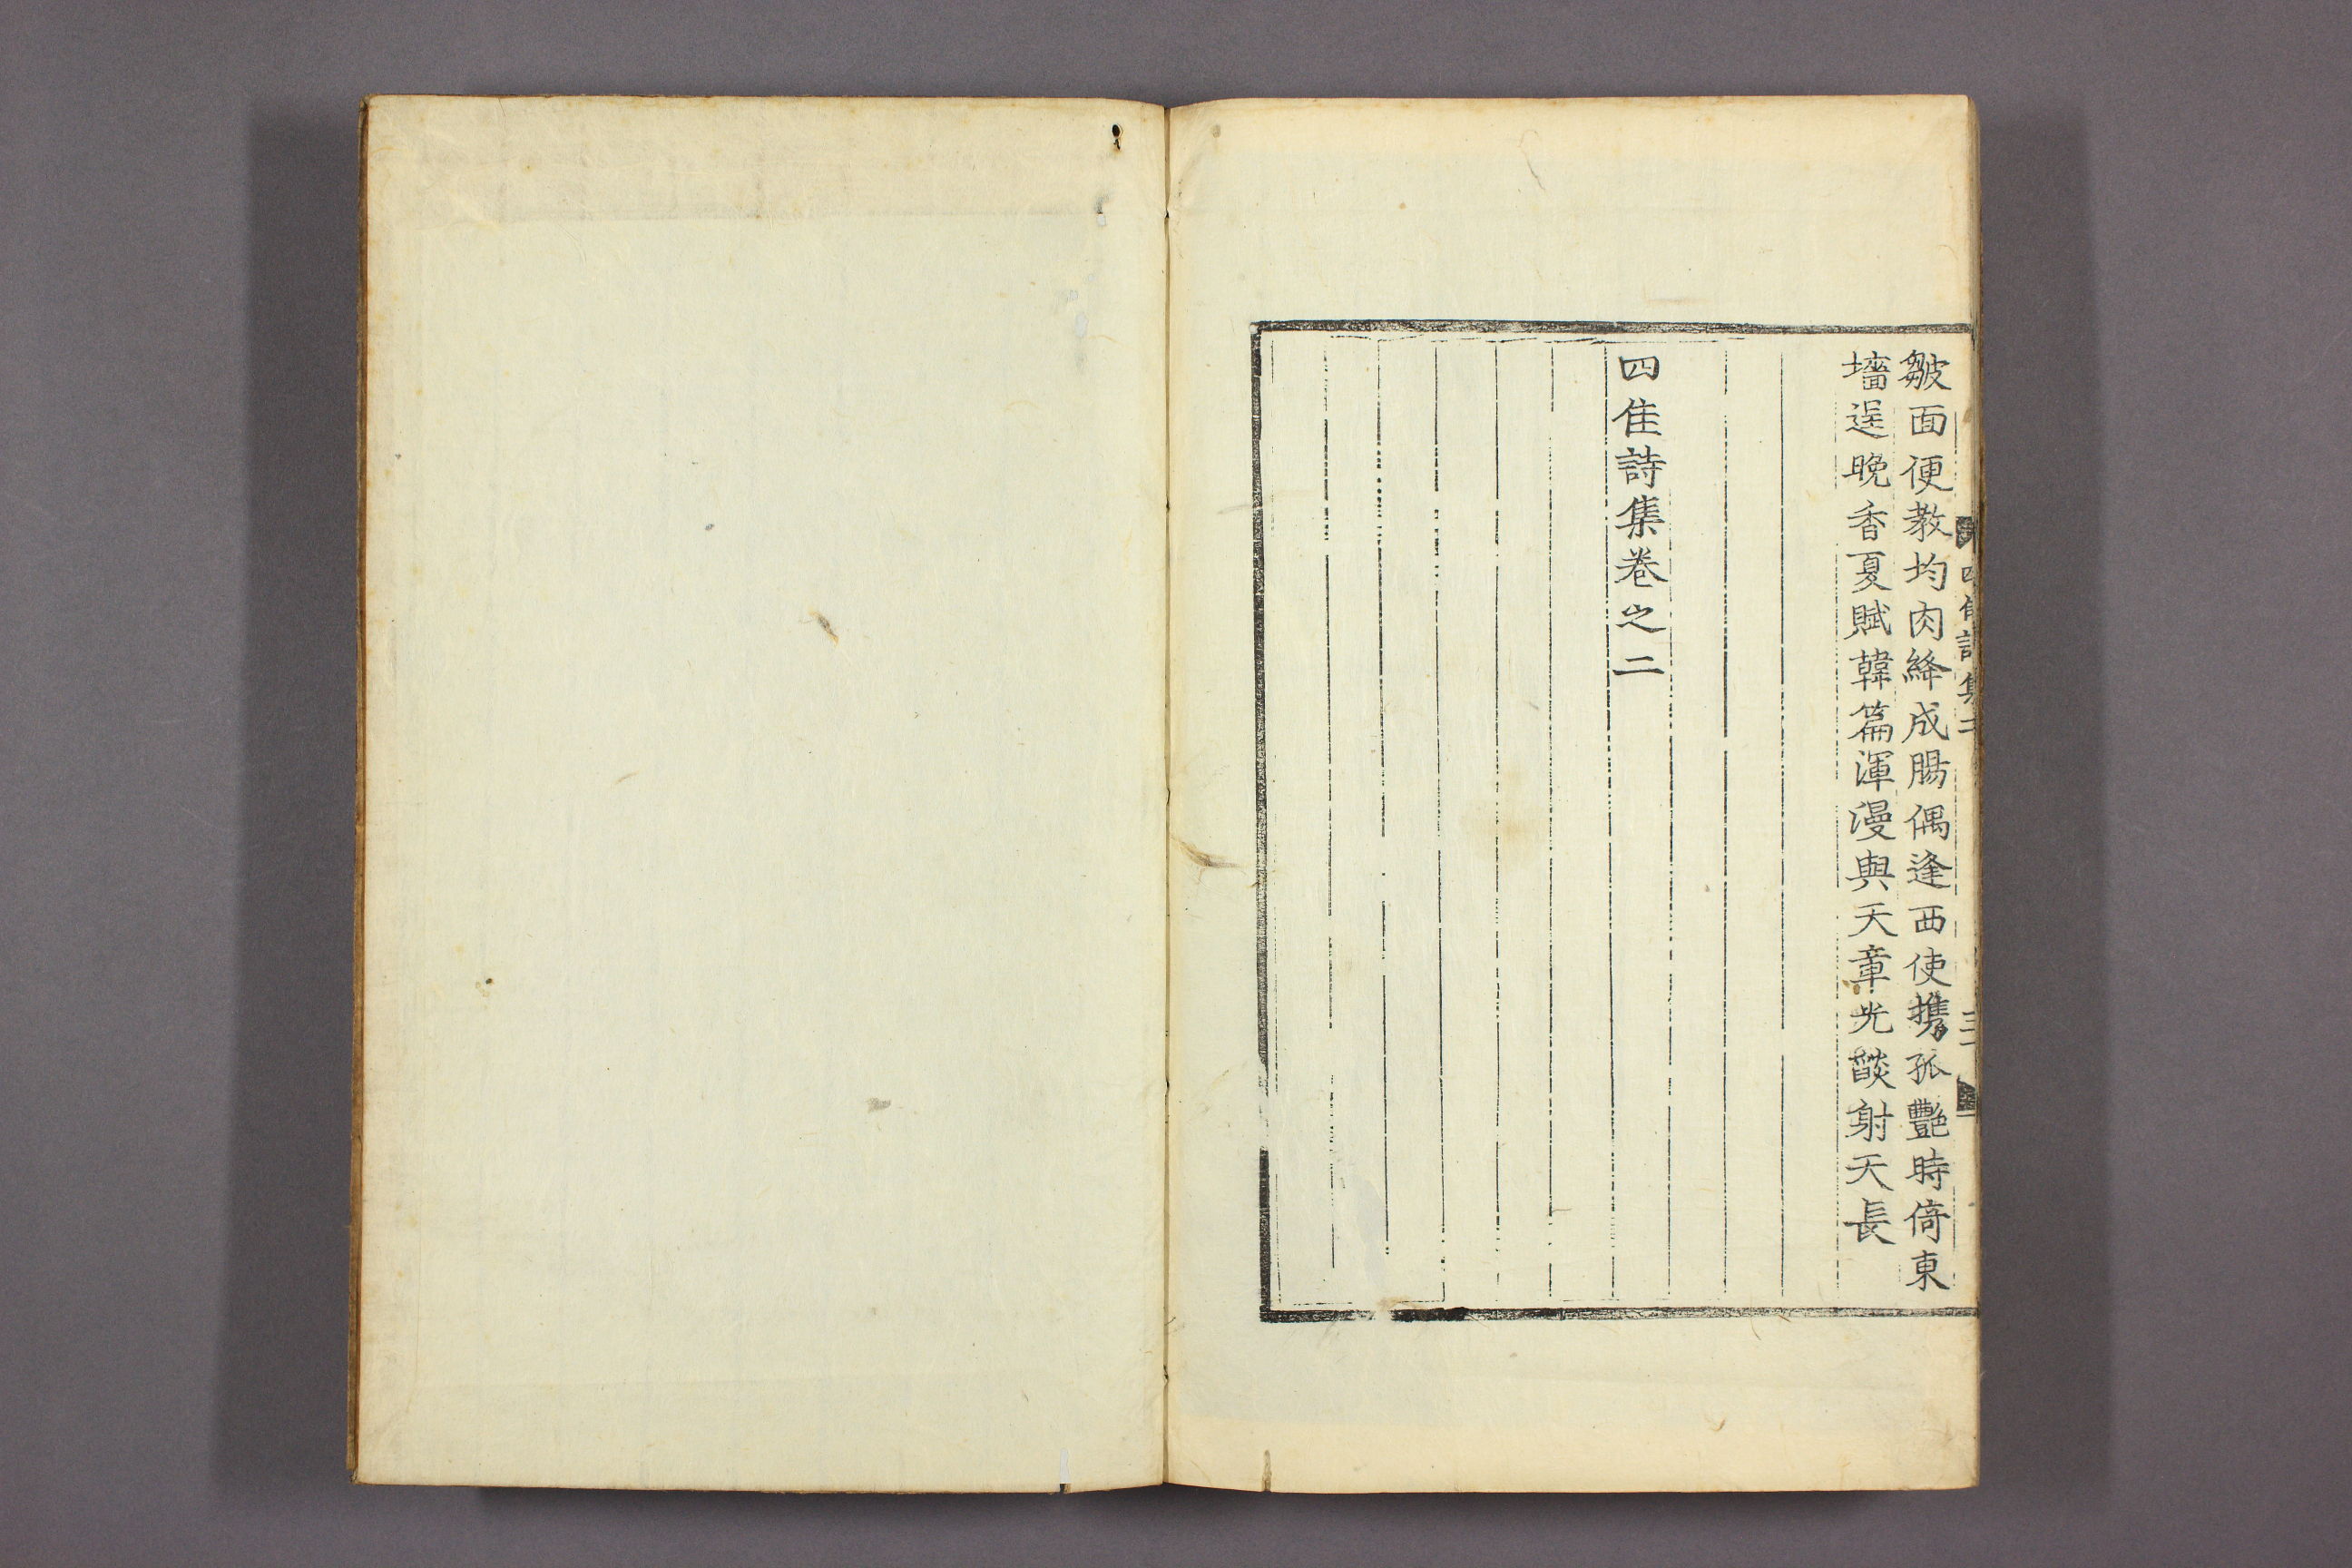 皺面便教均肉絳成腸偶逢西使攜孤艷時倚東
墻逞晚香夏賦韓篇渾漫與天章光燄射天長
四佳詩集卷之二